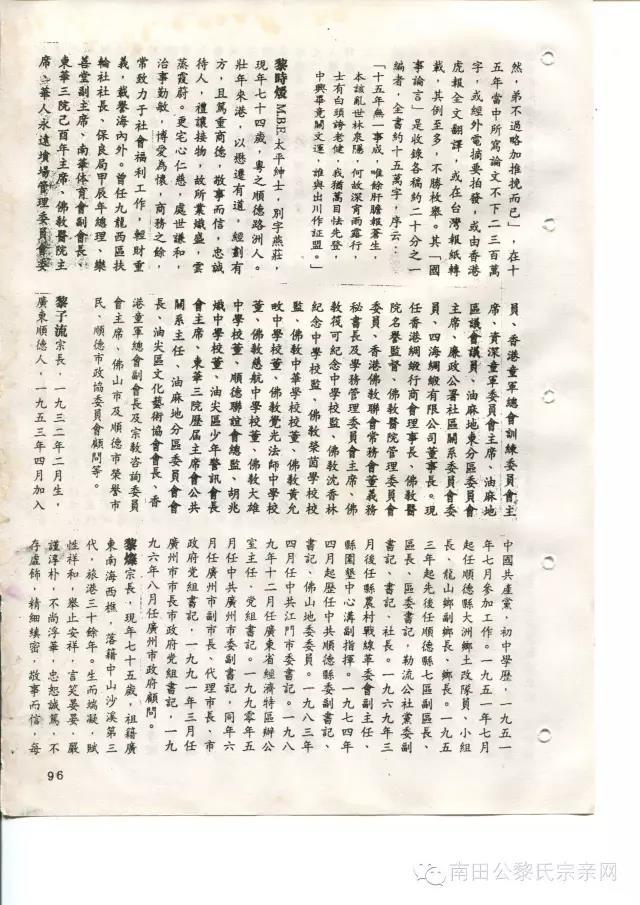 然，弟不過略加推挽而已」，在十
五年當中所寫論文不下二三百萬
字，或經外電摘要拍發，或由香港
虎報全文翻譯，或在台灣報紙轉
載，其例至多，不勝枚舉。其「國
事論言」是收錄各稿約二十分之一
編者，全書約十五萬字，序云：
「十五年無一事成，唯餘肝膽報蒼生，
本該亂世林泉隱，何故深宵雨露行，
士有白頭誇老健，我猶萬目快先登，
中興畢竟關文運，誰與出川作証盟。」
黎時煖M.B.E.太平紳士，別字燕莊，
現年七十四歲，粵之順德路洲人。
壯年來港，以懋遷有道，經劃有
方，且篤重商德，敬事而信，忠誠
待人，禮讓接物，故所業熾盛，雲
蒸霞蔚。更宅心仁慈，處世謙和，
治事勤敏，博愛為懷，商務之餘，
常致力于社會福利工作，輕財重
義，載譽海內外。曾任九龍西區扶
輪社社長、保良局甲辰年總理、樂
善堂副主席、南華体育會副會長、
東華三院己酉年主席、佛教醫院主
席、華人永遠墳場管理委員會委
員、香港童軍總會訓練委員會主
席、資深童軍委員會主席、油麻地
區議會議員、油麻地東分區委員會
主席、廉政公署社區關系委員會委
員、四海綢緞有限公司董事長。現
任香港綢緞行商會理事長、佛教醫
院名譽監督、佛教醫院管理委員會
委員、香港佛教聯會常務會董義務
秘書長及學務管理委員會主席、佛
教筏可紀念中學校監、佛教沈香林
紀念中學校監、佛教榮茵學校校
監、佛教中華學校校董、佛教黃允
畋中學校董、佛教覺光法師中學校
董、佛教慈航中學校董、佛教大雄
中學校董、順德聯誼會總監、胡兆
熾中學校董、油尖區少年警訊會長
會主席、東華三院歷屆主席會公共
關系主任、油麻地分區委員會會
長、油尖區文化藝術協會會長、香
港童軍總會副會長及宗教咨詢委員
會主席、佛山市及順德市榮譽市
民、順德市政協委員會顧問等。
黎子流宗長，一九三二年二月生，
廣東順德人，一九五三年四月加入
中國共產黨，初中學歷，一九五一
年七月參加工作。一九五一年七月
起任順德縣大洲鄉土改隊員、小組
長、龍山鄉副鄉長、鄉長。一九五
三年起先後任順德縣七區副區長、
區長、區委書記，勒流公社黨委副
書記、書記、社長。一九六九年三
月後任縣農村戰線革委會副主任、
縣圍墾中心溝副指揮。一九七四年
四月起歷任中共順德縣委副書記、
書記、佛山地委委員。一九八三年
四月任中共江門市委書記。一九八
九年十二月任廣東省經濟特區辦公
室主任、党組書記。一九九零年五
月任中共廣州市委副書記，同年六
月任廣州市副市長、代理市長、市
廣州市市長市政府党組書記，一九九一年三月任
九六年八月任廣州市政府顧問。
黎燦宗長，現年七十五歲，祖籍廣
東南海西樵，落籍中山沙溪第三
代，旅港三十餘年。生而端凝，賦
性祥和，舉止安祥，言笑晏晏，嚴
謹淳朴，不尚浮華，忠恕誠篤，不
存虛飾，精細縝密，敬事而信，每
96
南田公黎氏宗亲网